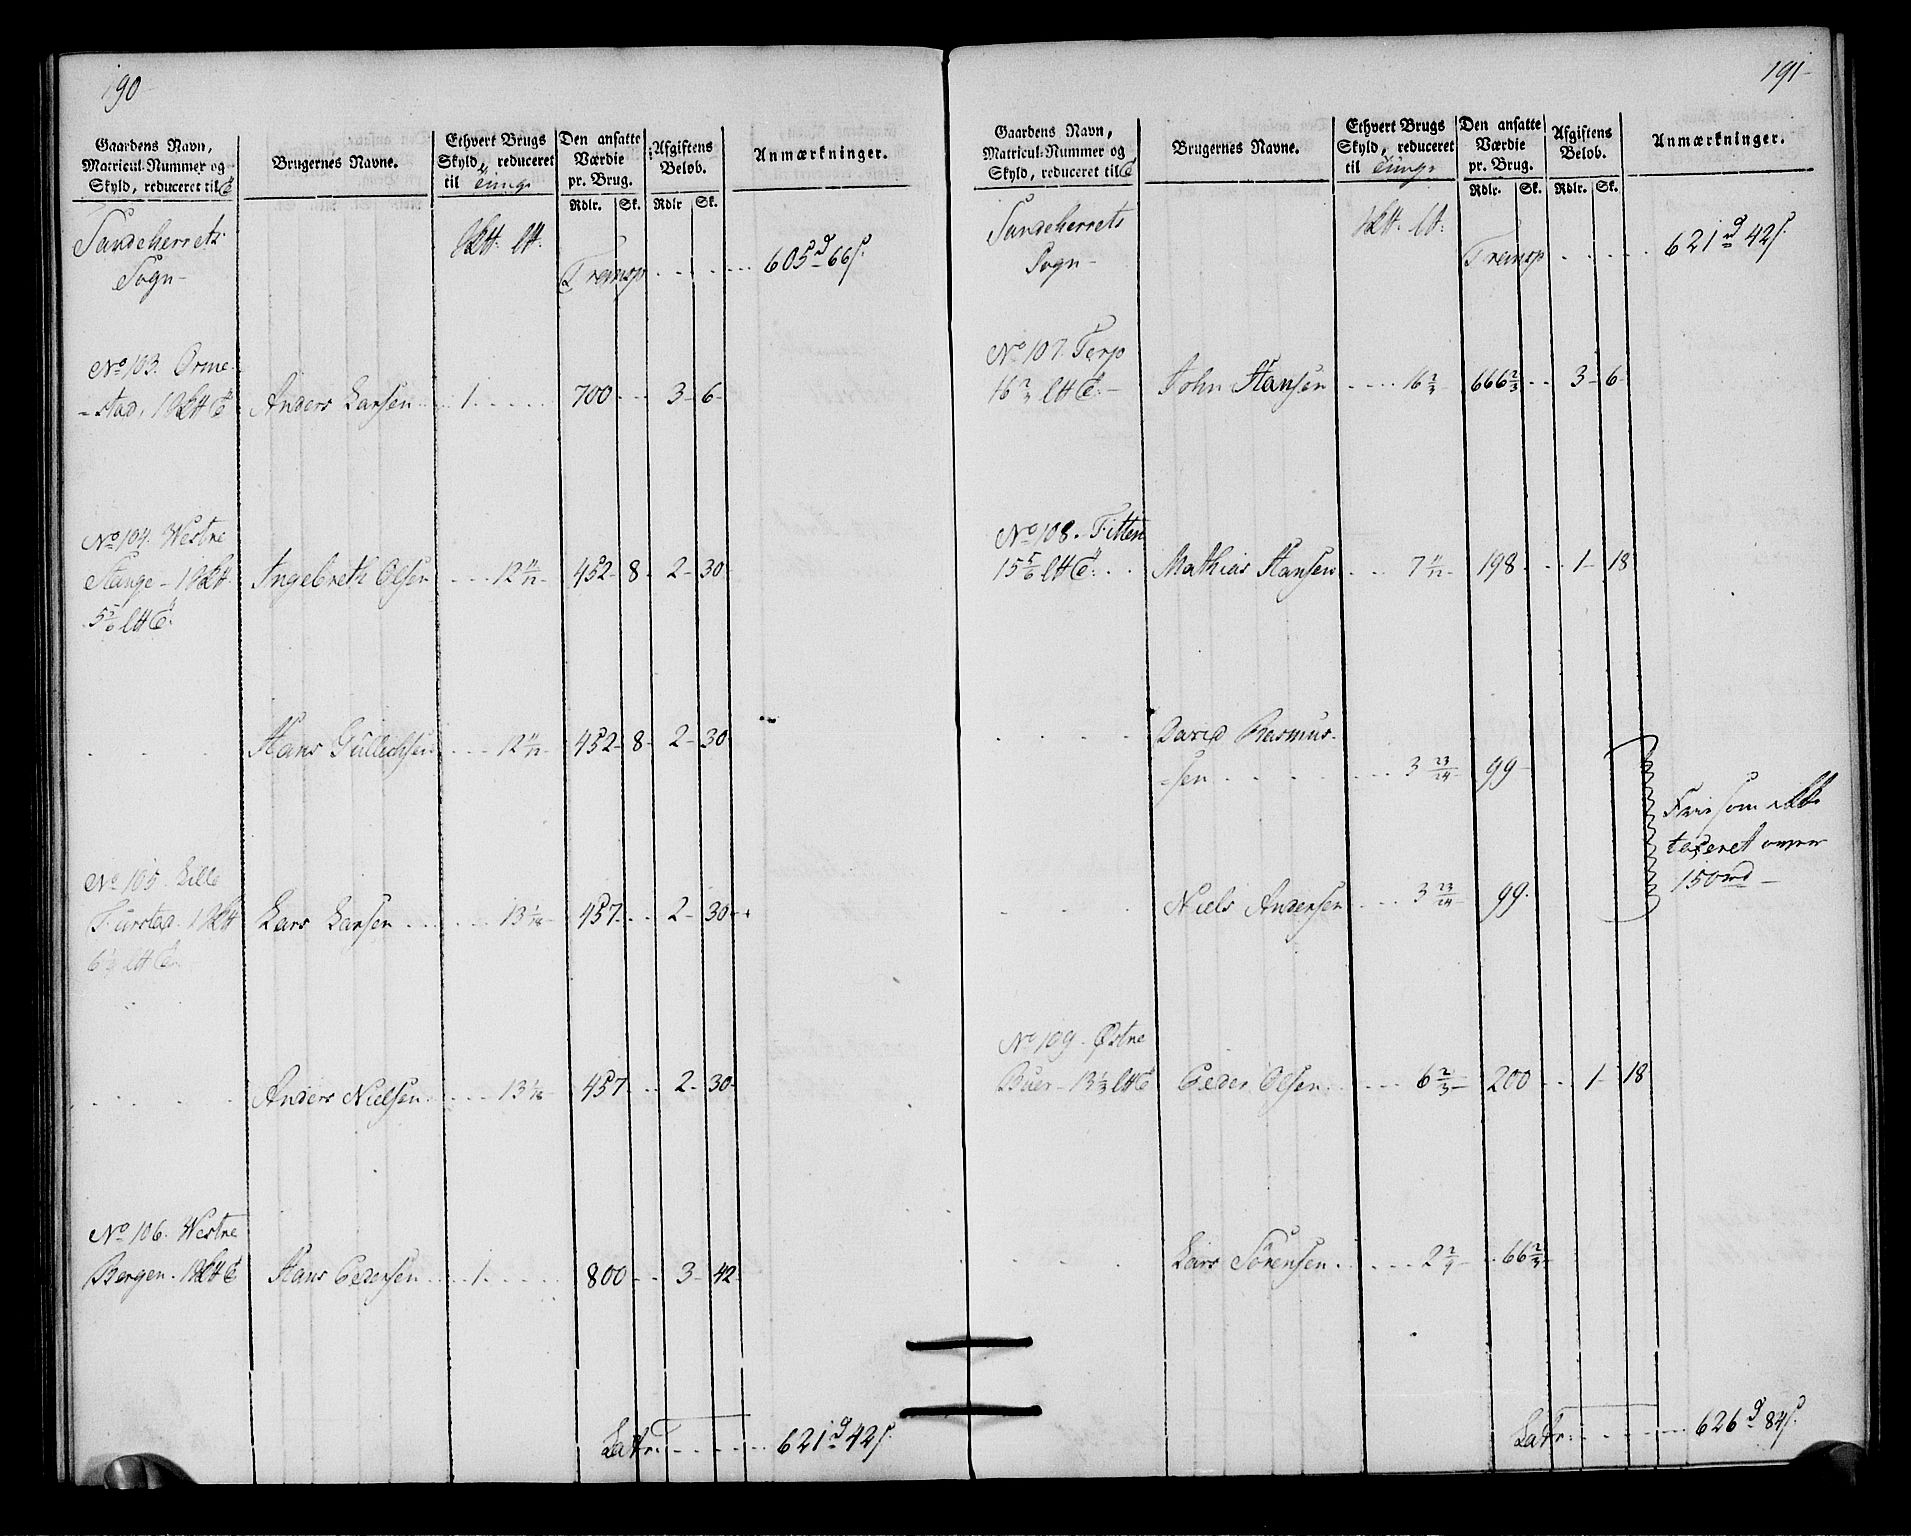 190
Gaardens Navn,
Matricul-Nummer og
Skyld, reduceret til
Brugernes Navne.
Ethvert Brugs
Skyld, reduceret
til Tunge
Den ansatte
Værdie
pr. Brug.
Rdlr. Sk.
Afgiftens
Belob.
Rdlr Sk.
Anmærkninger.
Sandeherrets
Sogn
Transp . . . . . 605 66
No 103. Orme-
-stad, 1 Anders Larsen 1 . . . 700 . . 3 - 6
No 104. Westre
Stange - 1 Ingebreth Olsen . . . 12 11/12 452 - 8 2 - 30
5 5/6
Hans Gullichsen . . . 12 11/12 452 - 8 - 2 - 30
No 105. Lille
Furstad. 1 Lars Larsen . . . 13 1/18 457 . . 2 - 30
6 1/9
Anders Nielsen . . . 13 1/18 457 . . 2 - 30
No 106. Westre
Bergen. 1 Hans Pedersen . . 1 . . . 800 . . 3 - 42
Latr: . . . . . 621 42
191
Gaardens Navn,
Matricul-Nummer og
Skyld, reduceret til
Brugernes Navne.
Ethvert Brugs
Skyld, reduceret
til Tunge
Den ansatte
Værdie
pr. Brug.
Rdlr. Sk.
Afgiftens
Belob.
Rdlr. Sk.
Anmærkninger.
Sandeherrets
Sogn -
Transp . . . . 621 42
No 107. Terp
16 2/3 John Hansen . . . 16 2/3 666 2/3 . . 3 - 6
No 108. Fitten
15 5/6 Mathias Hansen . . 7 11/12 198 . . 1 - 18
David Rasmus-
-sen . . . . 3 23/24 99
Frie som ikke
taxeret over
150
Niels Andersen . . . 3 23/24 99
No 109. Østre
Buer - 13 1/3 Peder Olsen . . . 6 2/3 200 . . 1 - 18
Lars Sörensen . . . . 2 2/9 66 2/3
Latr: . . . . . 626 84